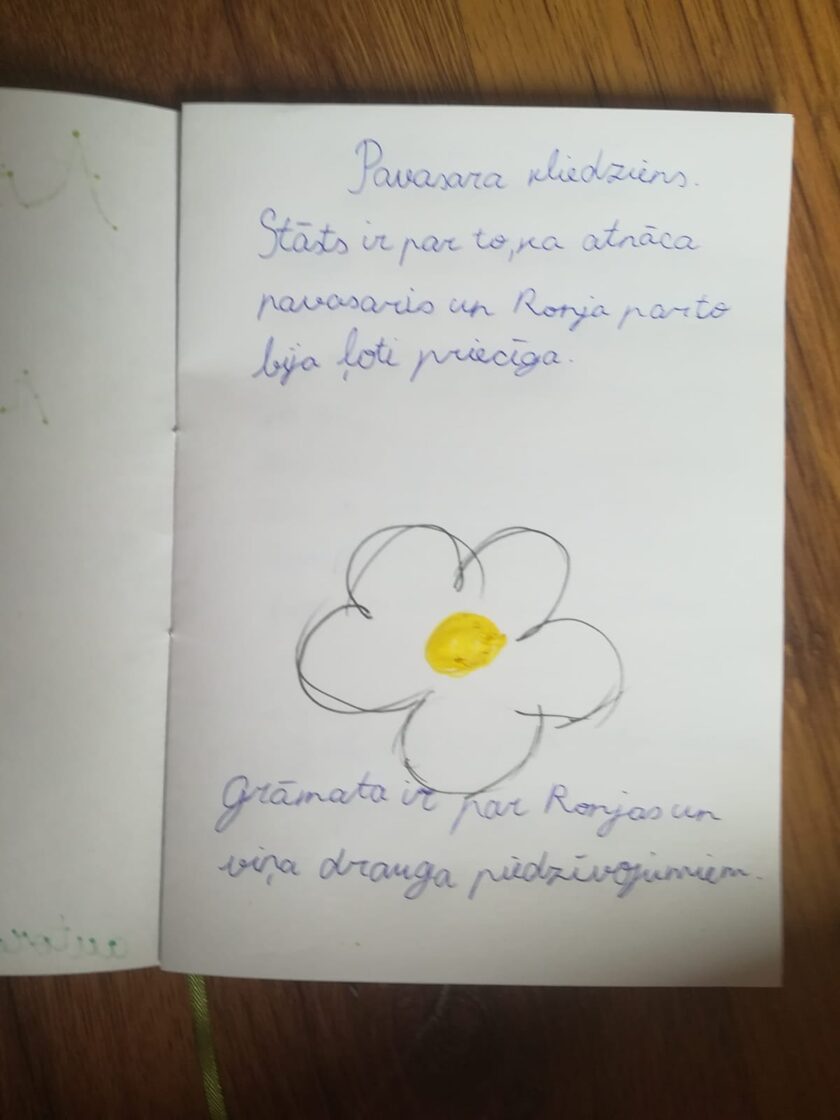 Pavasara kliedziens.
Stāsts ir par to, ka atnāca
pavasaris un Ronja par to
bija ļoti priecīga.
Grāmata ir par Ronjas un
viņa drauga piedzīvojumiem.
autors